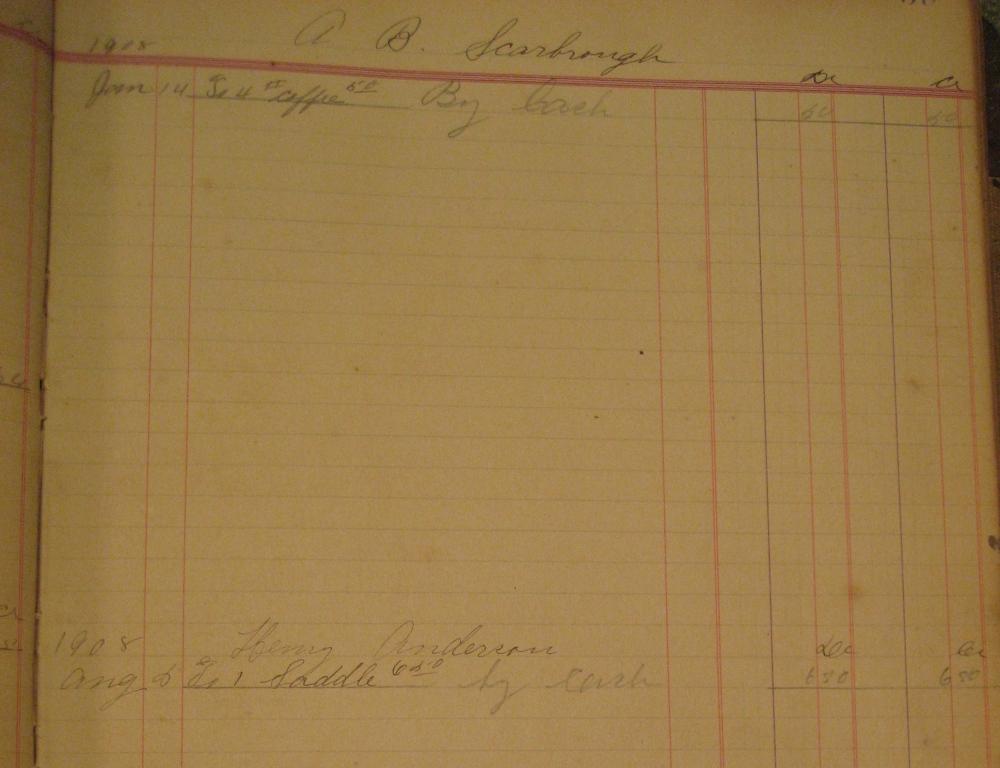 A B. Scarbrough
1908 Dr Cr
Jan 14 To 4 lb coffee 50 By Cash 50 50
1908 Henry Anderson Dr Cr
Aug 5 To 1 Saddle 650 by cash 650 650